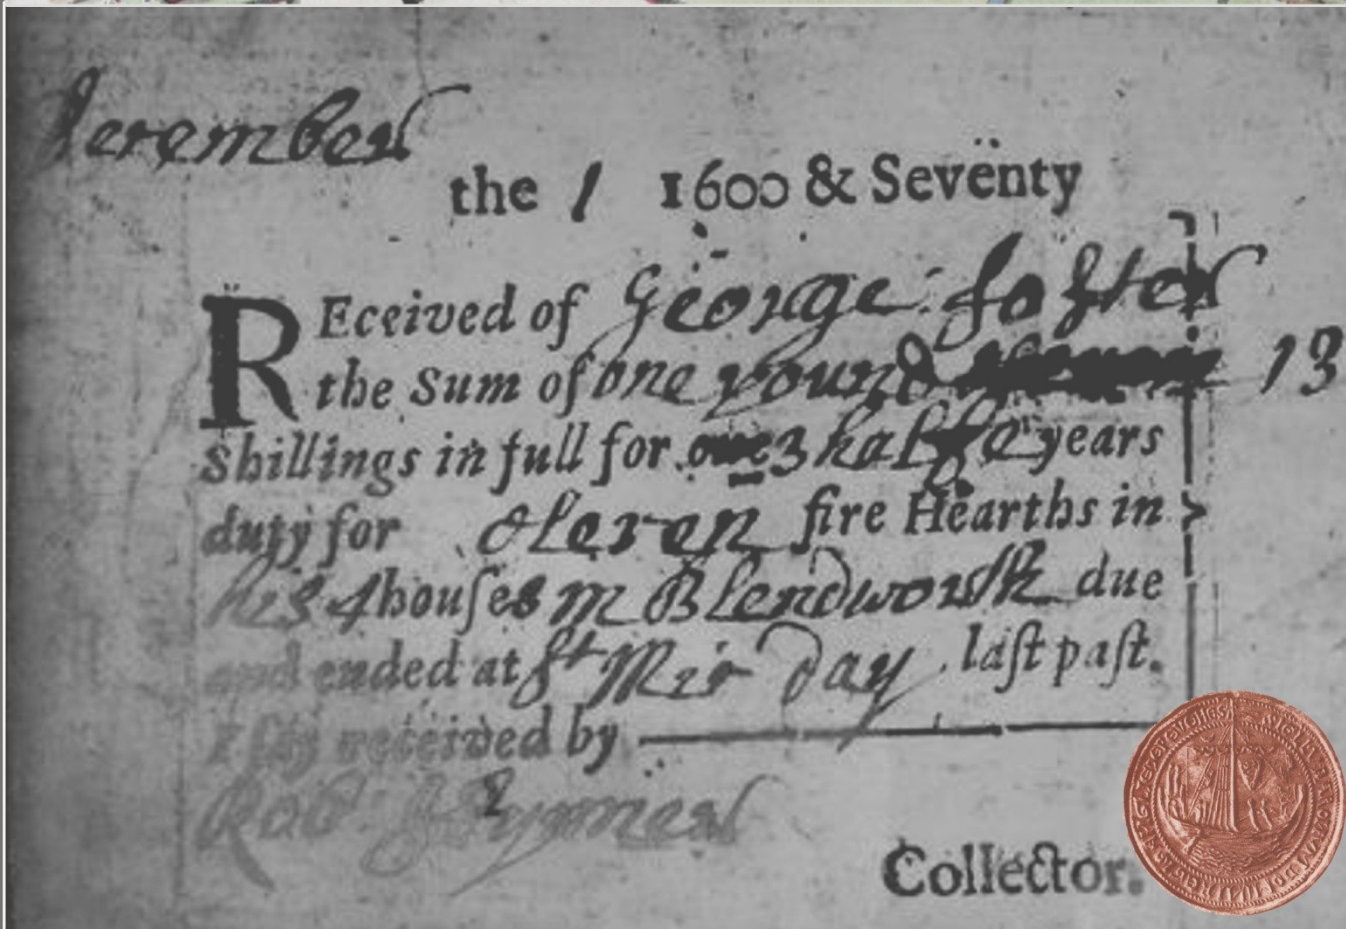 December
the 1 1600 & Seventy
REceived of George foster
the Sum of one pound 13
Shillings in full for 3 halfe years
duty for eleven fire Hearths in
his 4 houſes in Blendworth due
and ended at St Mic day laſt paſt.
I say received by
Rob:
Collector.